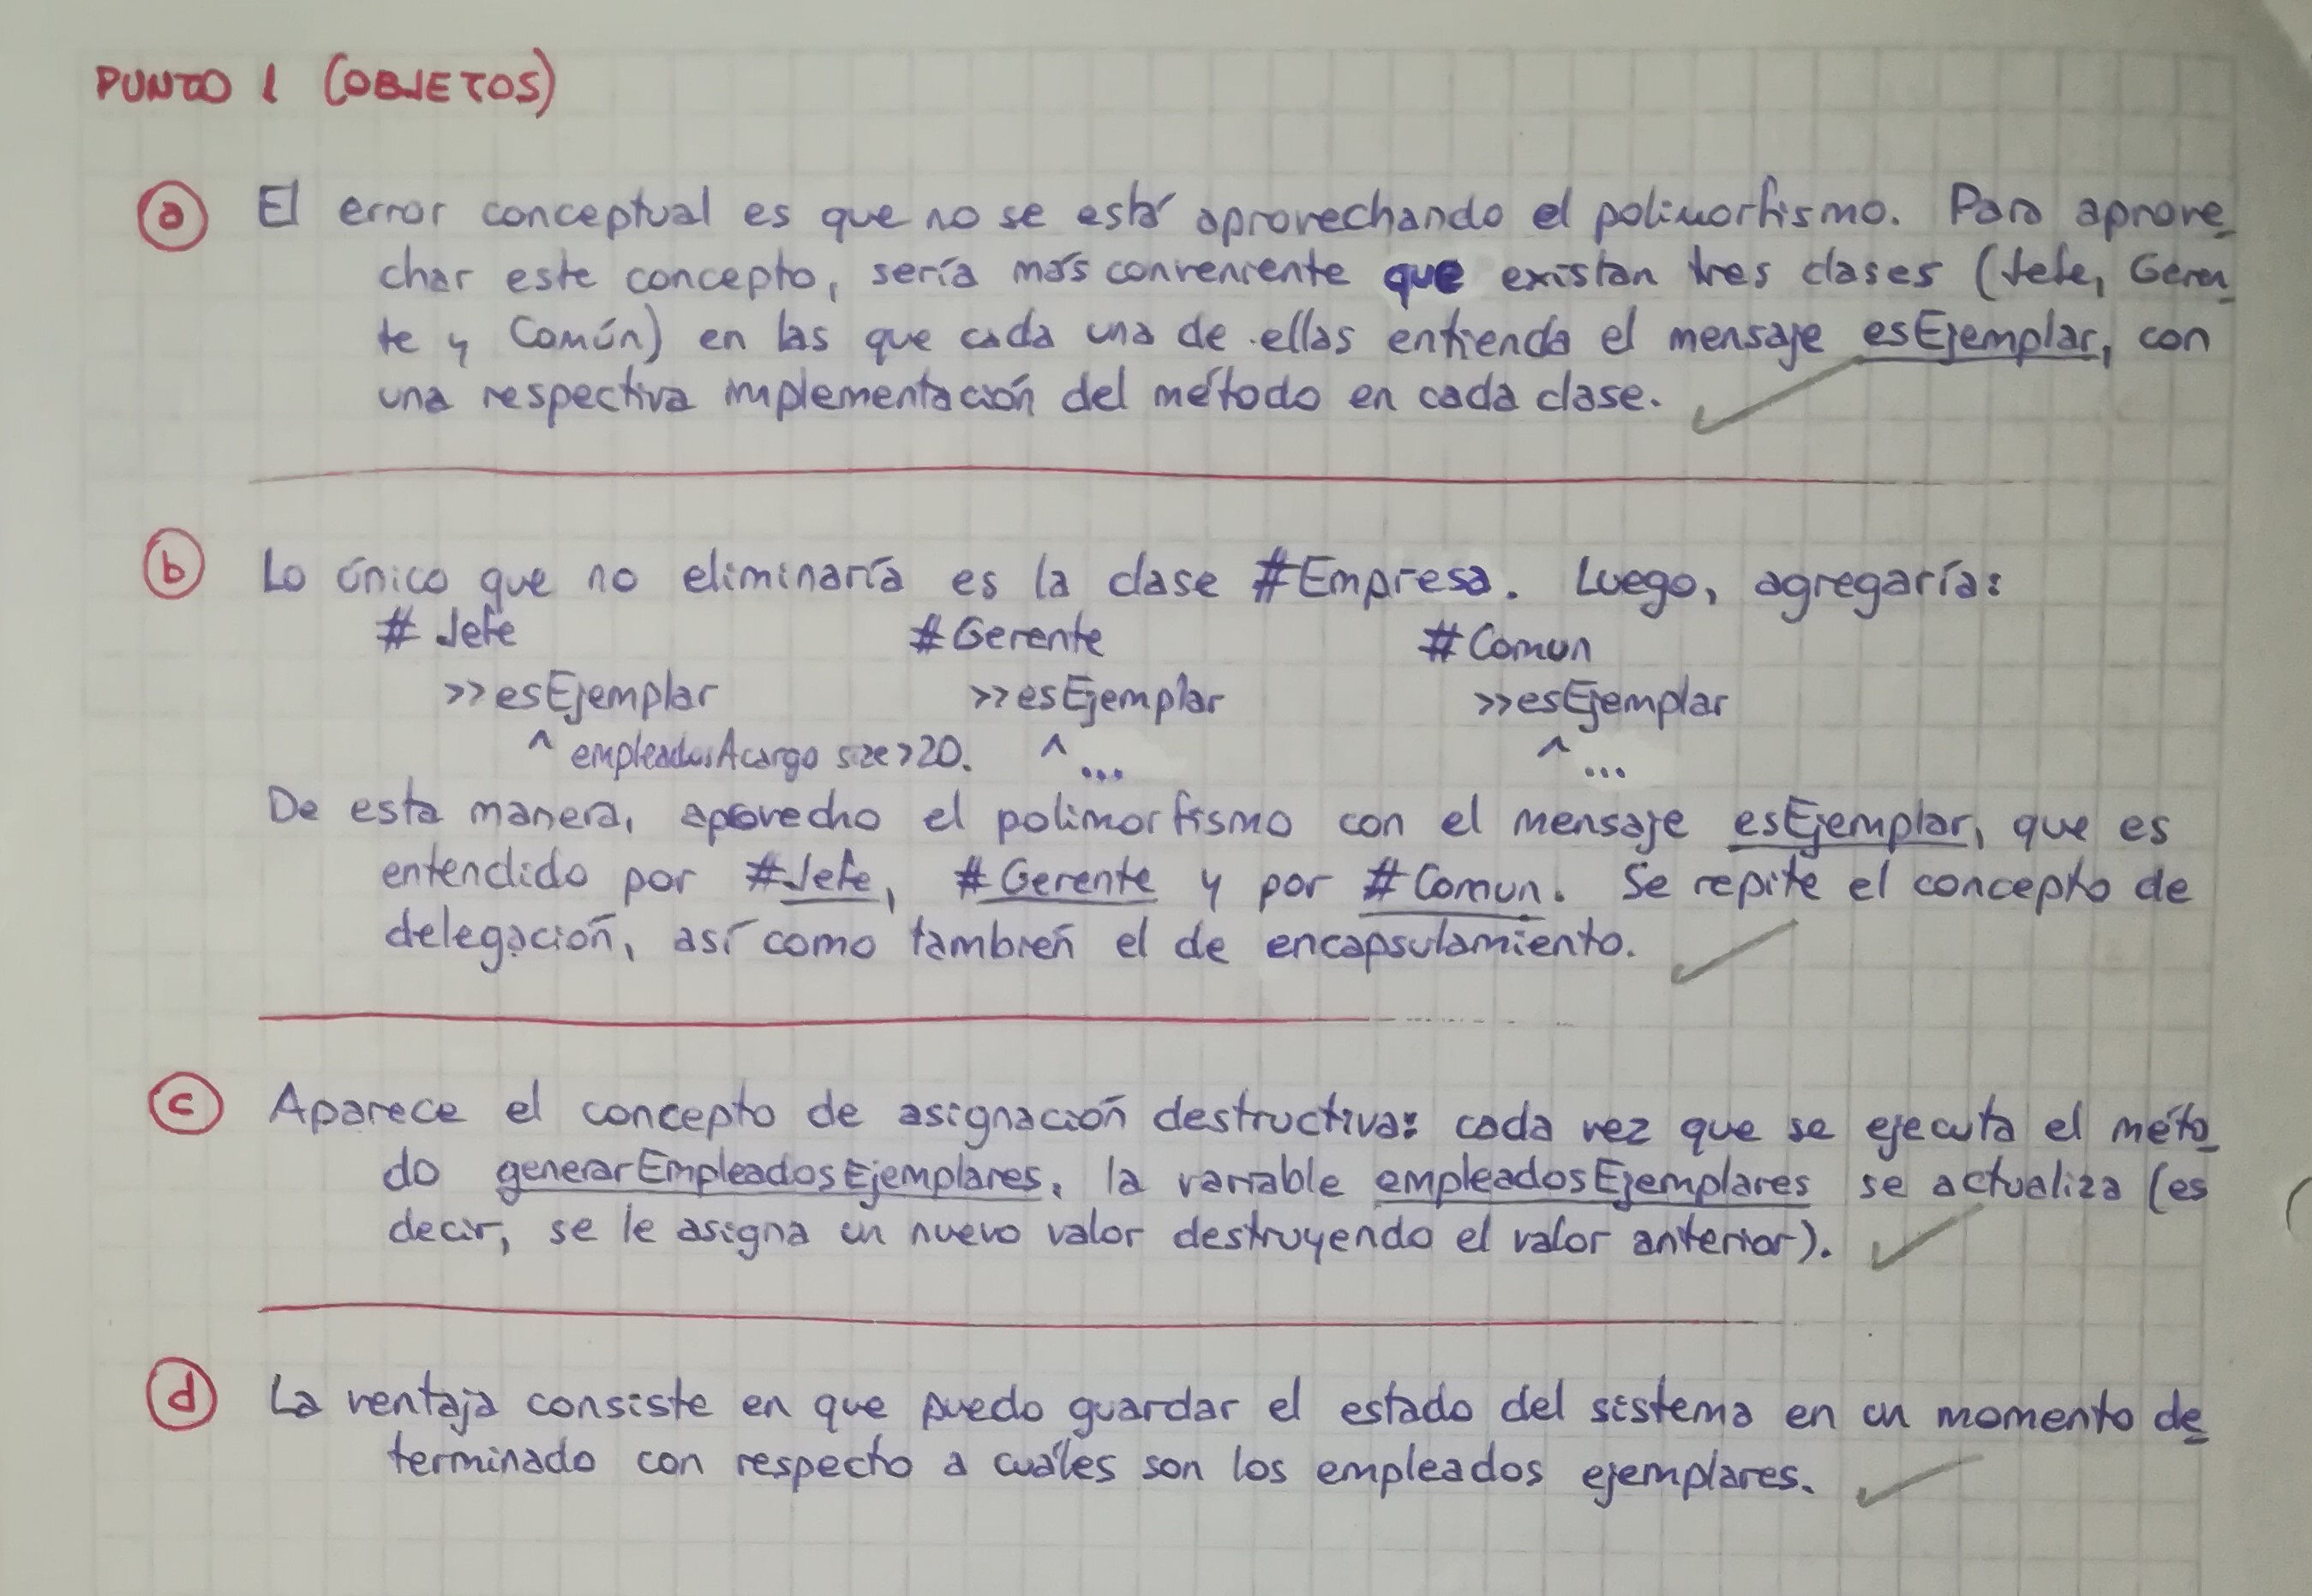 PUNTO 1 (OBJETOS)
a El error conceptual es que no se está aprovechando el polimorfismo. Para aprove
char este concepto, sería más conveniente que existan tres clases (Jefe, Geren
te y Común) en las que cada una de ellas entienda el mensaje esEjemplar, con
una respectiva implementación del método en cada clase.
b Lo único que no eliminaría es la clase #Empresa. Luego, agregaría:
# Jefe #Gerente #Comun
>>esEjemplar >>esEjemplar >>esEjemplar
^ empleadosAcargo size>20. ^ ... ^ ...
De esta manera, aprovecho el polimorfismo con el mensaje esEjemplar, que es
entendido por #Jefe, #Gerente y por #Comun. Se repite el concepto de
delegación, así como también el de encapsulamiento.
c Aparece el concepto de asignación destructiva: cada vez que se ejecuta el méto
do generarEmpleadosEjemplares, la variable empleadosEjemplares se actualiza (es
decir, se le asigna un nuevo valor destruyendo el valor anterior).
d La ventaja consiste en que puedo guardar el estado del sistema en un momento de
terminado con respecto a cuáles son los empleados ejemplares.